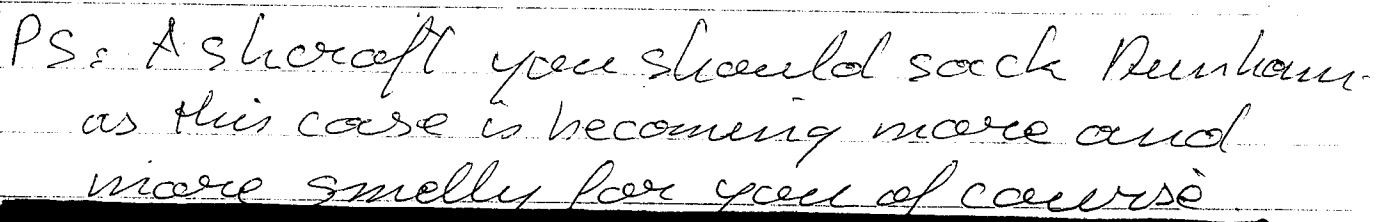 PS: Ashcroft you should sack Dunham
as this case is becoming more and
more smelly for you of course.